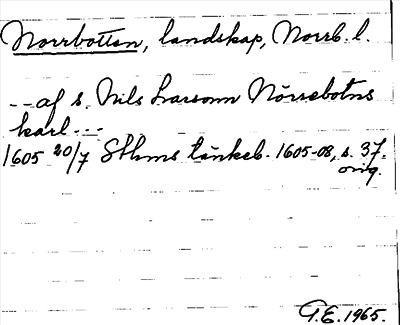 Norrbotten, landskap, Norrb. l.
-- af s. Nils Larsonn Nörrebotns
karl ---
1605 20/7 Sthms tänkeb. 1605-08, s. 37.
orig.
G.E. 1965.